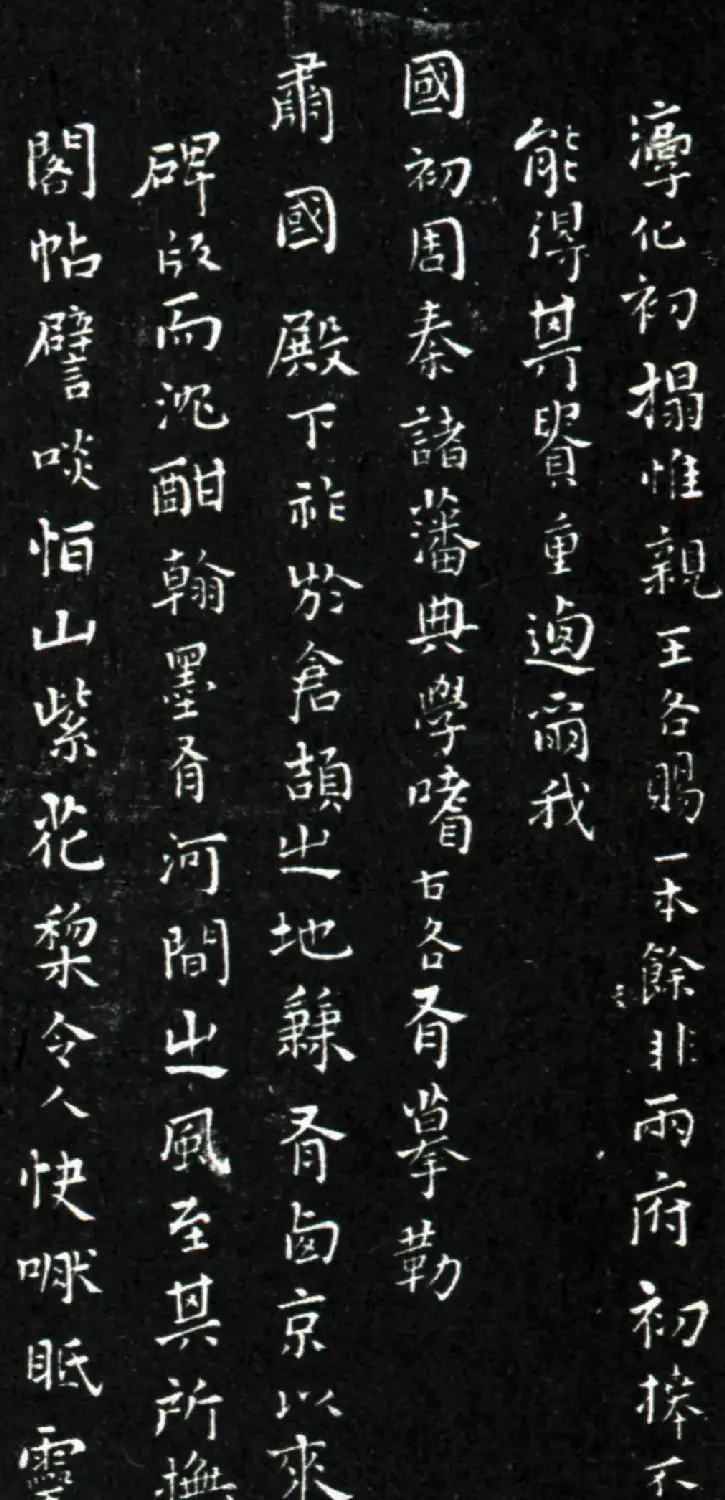 淳化初搨惟親王各賜一本餘非兩府初捧不
能得其貴重迺爾我
國初周秦諸藩典學嗜古各有摹勒
肅國殿下祚於倉頡之地兼有西京以來
碑版而沈酣翰墨有河間之風至其所撫
閣帖譬啖怕山紫花梨令人快眡雪